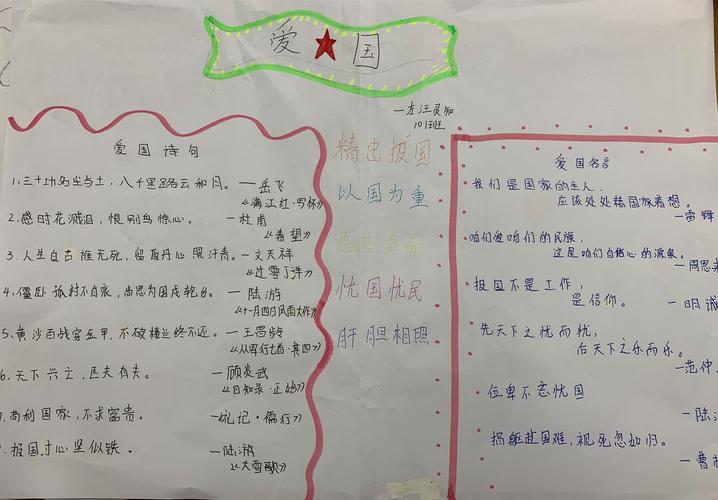 爱★国
一左汪灵
1011班
爱国诗句
1、三十功名尘与土，八千里路云和月。——岳飞
《满江红·写怀》
2、感时花溅泪，恨别鸟惊心。—杜甫
《春望》
3、人生自古谁无死，留取丹心照汗青。—文天祥
《过零丁洋》
4、僵卧孤村不自哀，尚思为国戍轮台。—陆游
《十一月四日风雨大作》
5、黄沙百战穿金甲，不破楼兰终不还。—王昌龄
《从军行七首·其四》
6、天下兴亡，匹夫有责。—顾炎武
《日知录·正始》
苟利国家，不求富贵。—《礼记·儒行》
报国寸心坚似铁。—陆游
《大雪歌》
精忠报国
以国为重
匹夫有责
忧国忧民
肝胆相照
爱国名言
我们是国家的主人，
应该处处替国家着想。
—雷锋
咱们爱咱们的民族，
这是咱们自信心的源泉。
—周恩来
报国不是工作，
是信仰。
—明诚
先天下之忧而忧，
后天下之乐而乐。
—范仲
位卑不忘忧国
—陆
捐躯赴国难，视死忽如归。
—曹